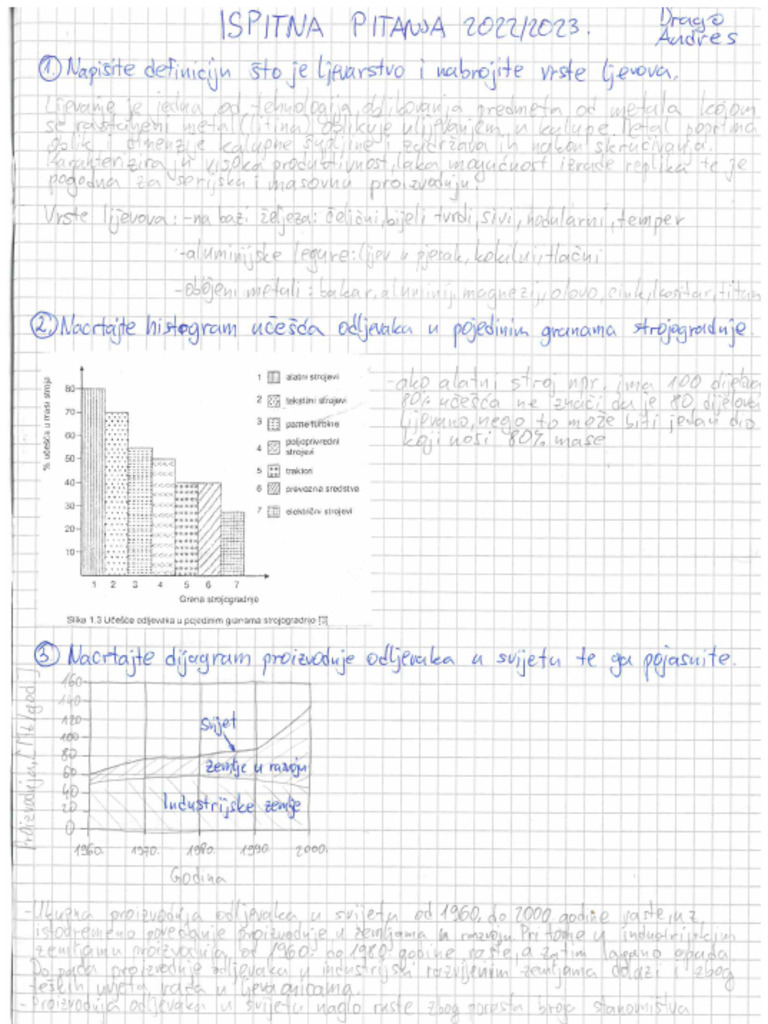 ISPITNA PITANJA 2022/2023.
Drago
Andres
1. Napišite definiciju što je ljevarstvo i nabrojite vrste ljevova.
Lijevanje je jedna od tehnologija oblikovanja predmeta od metala kojom
se rastaljeni metal (litina) oblikuje ulijevanjem u kalupe. Metal poprima
oblik i dimenzije kalupne šupljine i zadržava ih nakon skrućivanja.
Karakterizira ju visoka produktivnost, laka mogućnost izrade replika te je
pogodna za serijsku i masovnu proizvodnju.
Vrste lijevova: -na bazi željeza: čelični, bijeli tvrdi, sivi, nodularni, temper
-aluminijske legure: lijev u pjesak, kokilni, tlačni
-obojeni metali: bakar, aluminij, magnezij, olovo, cink, kositar, titan
2. Nacrtajte histogram učešća odljevaka u pojedinim granama strojogradnje.
% učešća u masi stroja
80
70
60
50
40
30
20
10
1 2 3 4 5 6 7
Grana strojogradnje
1 alatni strojevi
2 tekstilni strojevi
3 parne turbine
4 poljoprivredni
strojevi
5 traktori
6 prevozna sredstva
7 električni strojevi
Slika 1.3 Učešće odljevaka u pojedinim granama strojogradnje [3]
-ako alatni stroj npr. ima 100 dijelova
80% učešća ne znači da je 80 dijelova
ljevano, nego to može biti jedan dio
koji nosi 80% mase
3. Nacrtajte dijagram proizvodnje odljevaka u svijetu te ga pojasnite.
Proizvodnja, [Mt/god]
160
140
120
100
80
60
40
20
0
Svijet
Zemlje u razvoju
Industrijske zemlje
1960. 1970. 1980. 1990. 2000.
Godina
-Ukupna proizvodnja odljevaka u svijetu od 1960. do 2000 godine raste, uz
istodobno povećanje proizvodnje u zemljama u razvoju. Pri tome u industrijskim
zemljama proizvodnja od 1960. do 1980 godine raste, a zatim lagano opada
Do pada proizvodnje odljevaka u industrijski razvijenim zemljama dolazi zbog
teških uvjeta rada u ljevaonicama.
-Proizvodnja odljevaka u svijetu naglo raste zbog porasta broja stanovništva